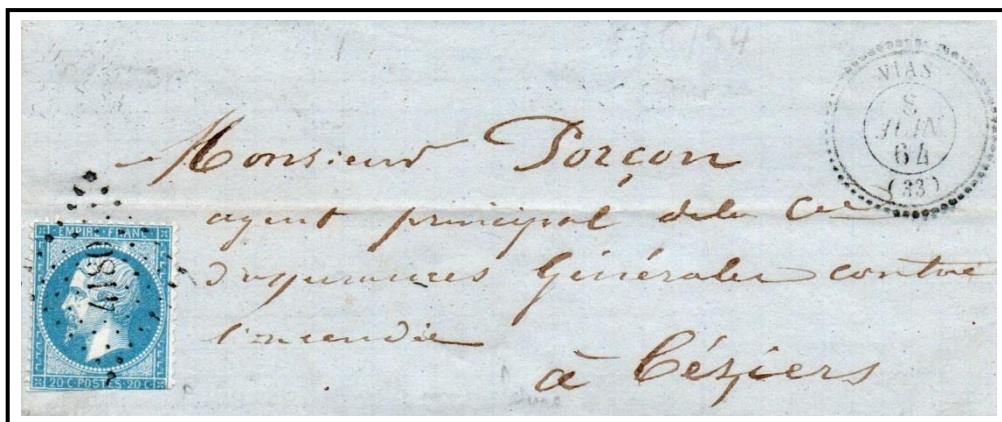 VIAS
8
JUIN
64
(33)
Monsieur Porçon
agent principal de la Cie
d'assurances Générales contre
l'incendie
à Béziers
EMPIRE FRANC
4180
20 C POSTES 20 C